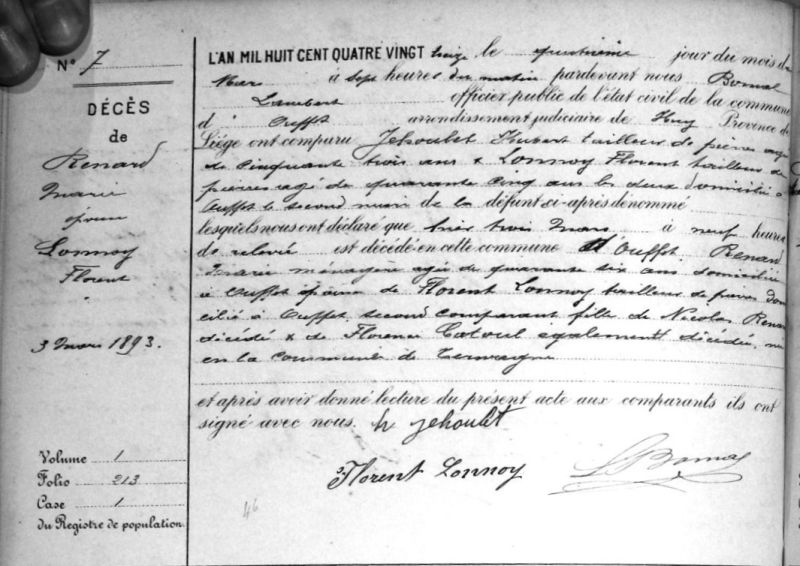 N° 7
DÉCÈS
de
Renard
Marie
épouse
Lonnoy
Florent
3 Mars 1893.
Volume 1
Folio 213
Case 1
du Registre de population.
L'AN MIL HUIT CENT QUATRE VINGT treize le quatrième jour du mois de
Mars à sept heures du matin pardevant nous Bomal
Lambert officier public de l'état civil de la commune
d' Ouffet arrondissement judiciaire de Huy Province de
Liége ont comparu Jehoulet Hubert tailleur de pierres agé
de cinquante trois ans & Lonnoy Florent tailleur de
pierres agé de quarante cinq ans les deux domiciliés à
Ouffet le second mari de la défunte ci-après dénommé
lesquels nous ont déclaré que hier trois Mars à neuf heures
de relevée est décédé en cette commune d'Ouffet Renard
Marie ménagère agée de quarante six ans domiciliée
à Ouffet épouse de Florent Lonnoy tailleur de pierres dom
cilié à Ouffet, second comparant fille de Nicolas Renard
décédé & de Florence Catoul également décédée, née
en la commune de Terwagne
et après avoir donné lecture du présent acte aux comparants ils ont
signé avec nous. h Jehoulet
Florent Lonnoy
L Bomal
46